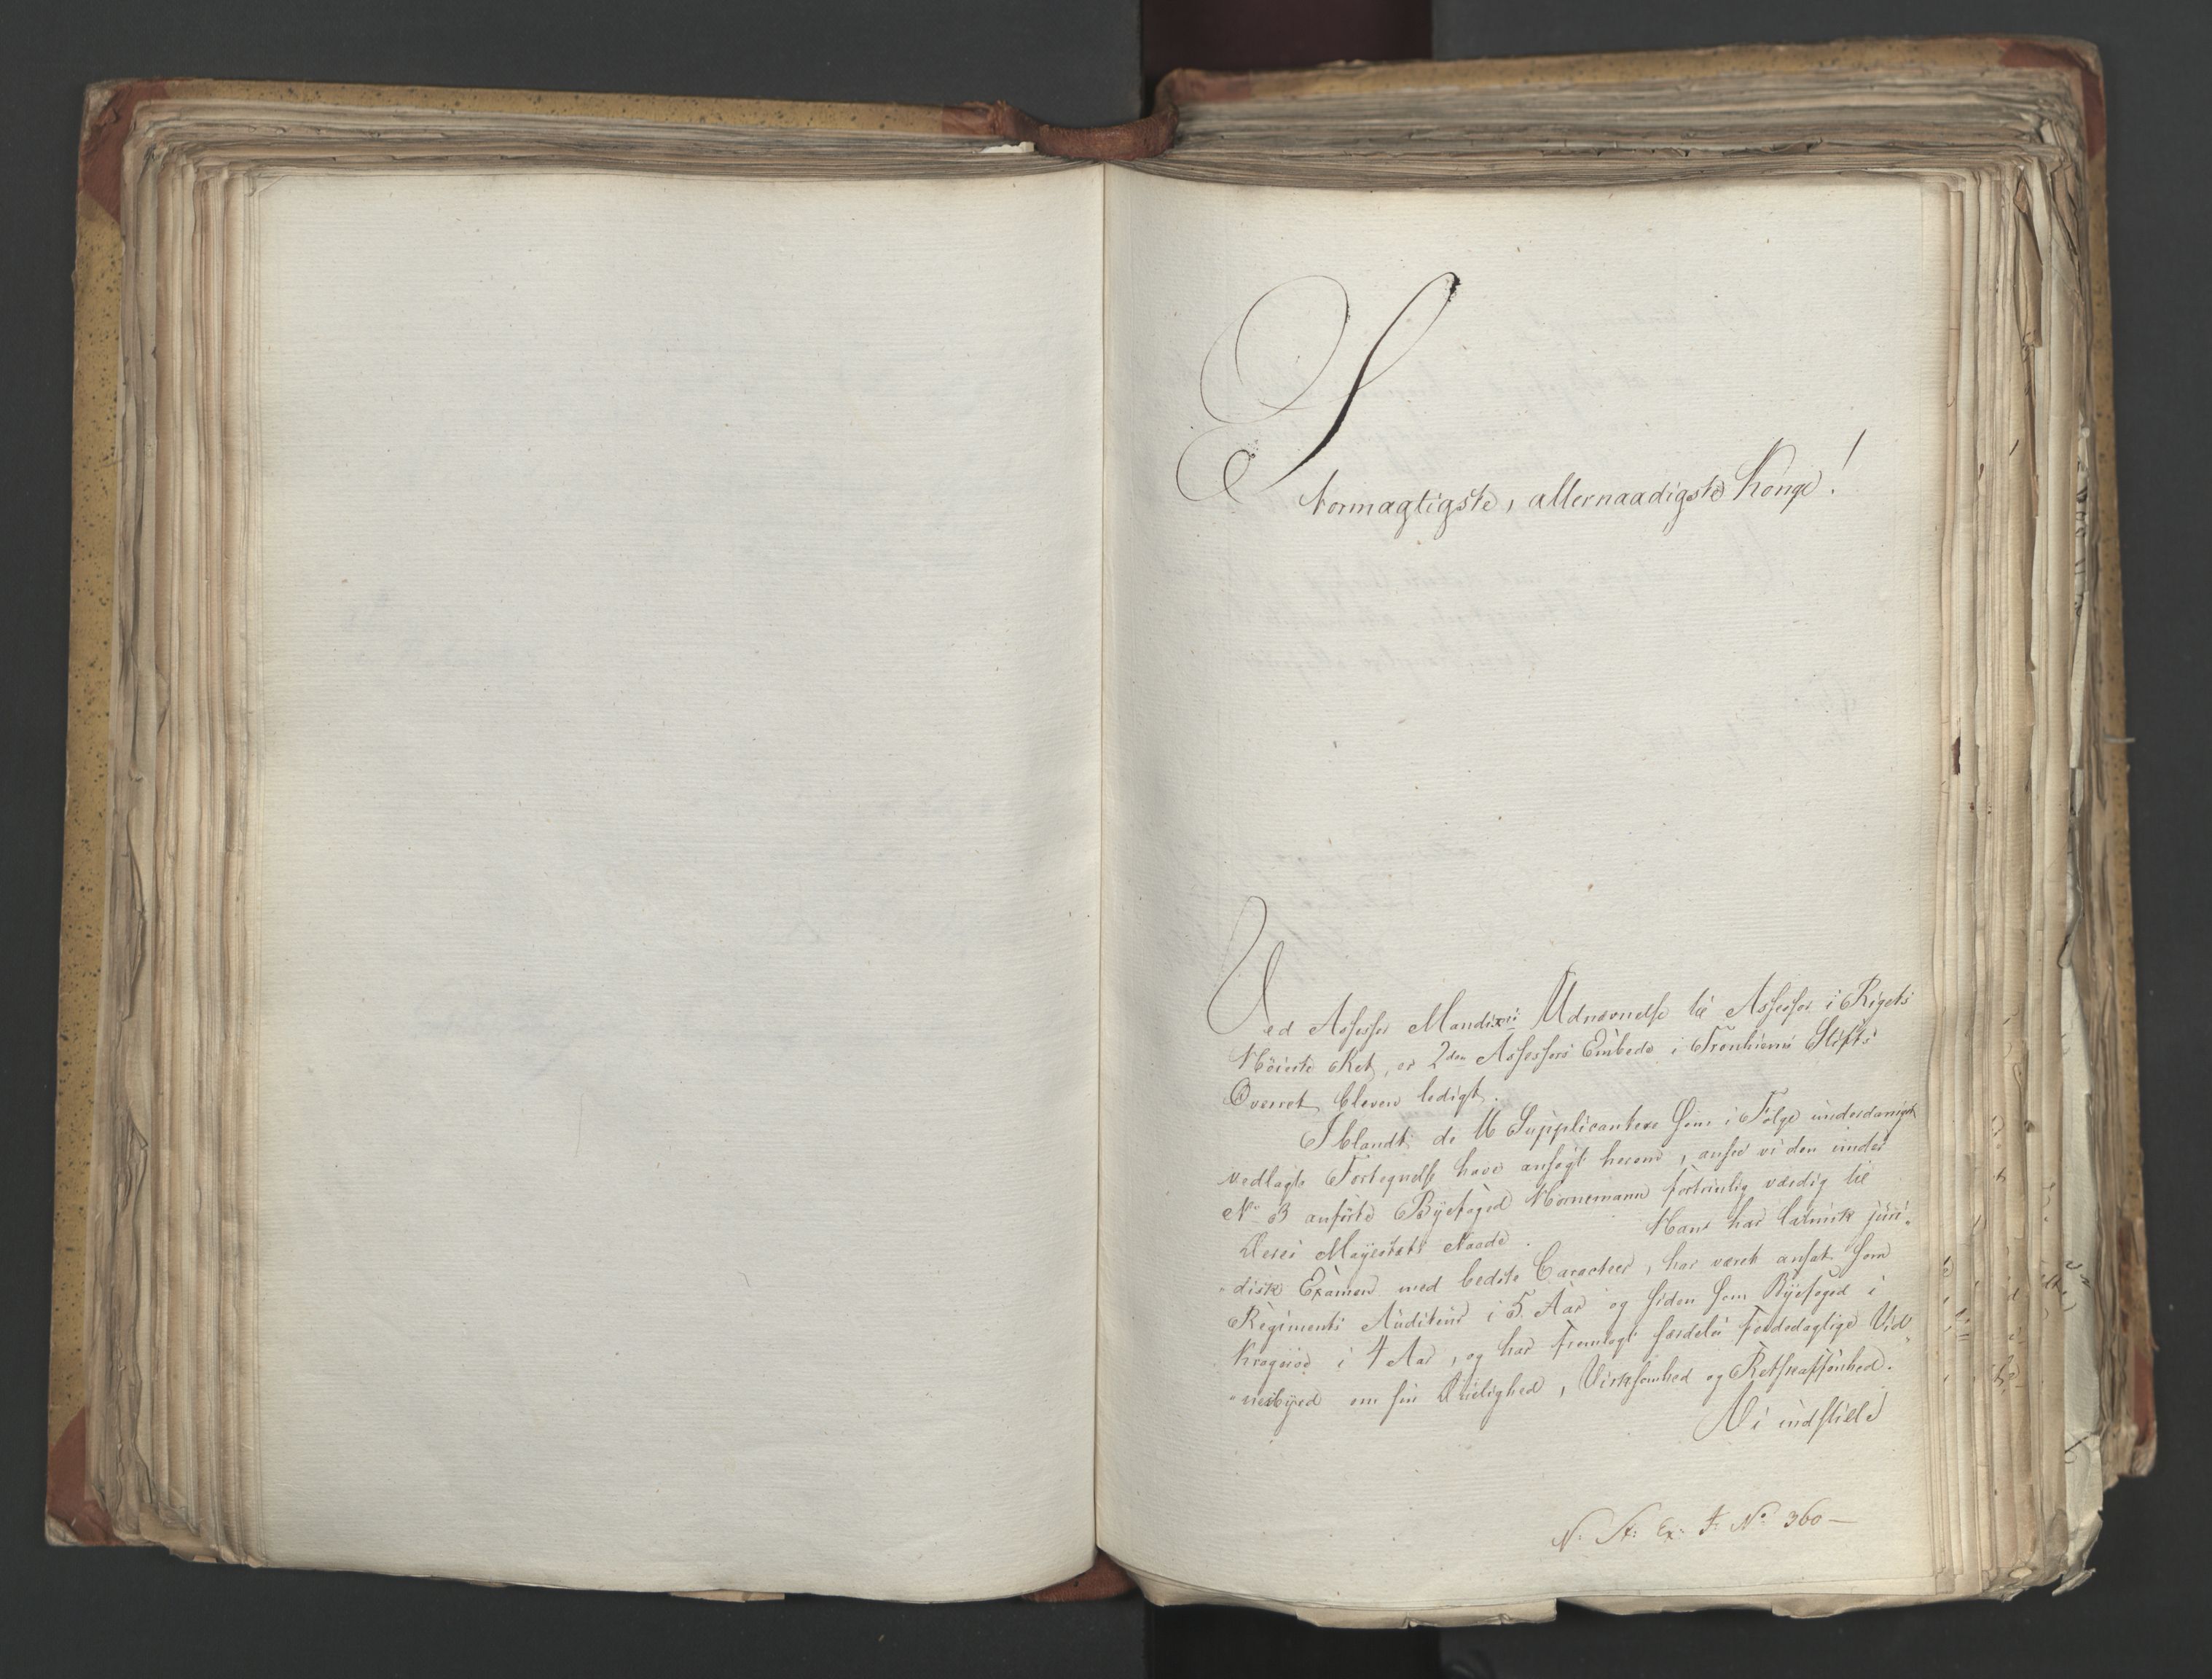 Stormægtigste, allernaadigste Konge!
Ved Assessor Mandixs Udnævnelse til Assessor i Rigets
Höieste Ret, er 2den Assessors Embede i Tronhiems Stifts
Overret bleven ledigt.
Iblandt de 16 Supplicantere som i Fölge underdanigst
vedlagte Fortegnelse have ansögt herom, ansee vi den under
No 3 anförte Byefoged Hornemann fortrinlig værdig til
Deres Majestæts Naade. Hans har latinsk juri-
-disk Examen med bedste Caracteer, har været ansat som
Regiments Auditeur i 5 Aar og siden som Byefoged i
Krageröe i 4 Aar, og har fremlagt særdeles fordeelagtige Vid-
-nesbyrd om sin Duelighed, Virksomhed og Retskaffenhed.
Vi indstille
N: St: Ex: F: No 360 —